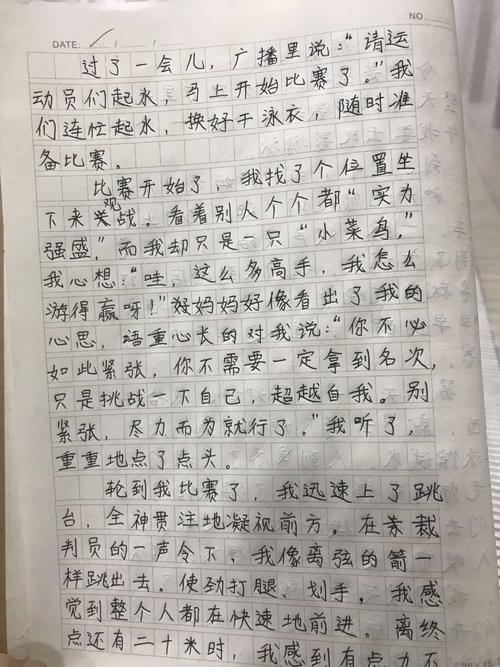 NO.
DATE: / /
过了一会儿，广播里说：“请运
动员们起水，马上开始比赛了。”我
们连忙起水，换好干泳衣，随时准
备比赛。
比赛开始了，我找了个位置坐
下来观战。看着别人个个都“实力
强盛，”而我却只是一只“小菜鸟，”
我心想：“哇，这么多高手，我怎么
游得赢呀！”妈妈好像看出了我的
心思，语重心长的对我说：“你不必
如此紧张，你不需要一定拿到名次，
只是挑战一下自己，超越自我。别
紧张，尽力而为就行了。”我听了，
重重地点了点头。
轮到我比赛了，我迅速上了跳
台，全神贯注地凝视前方。在裁
判员的一声令下，我像离弦的箭一
样跳出去。使劲打腿、划手。我感
觉到整个人都在快速地前进。离终
点还有二十米时，我感到有点力不